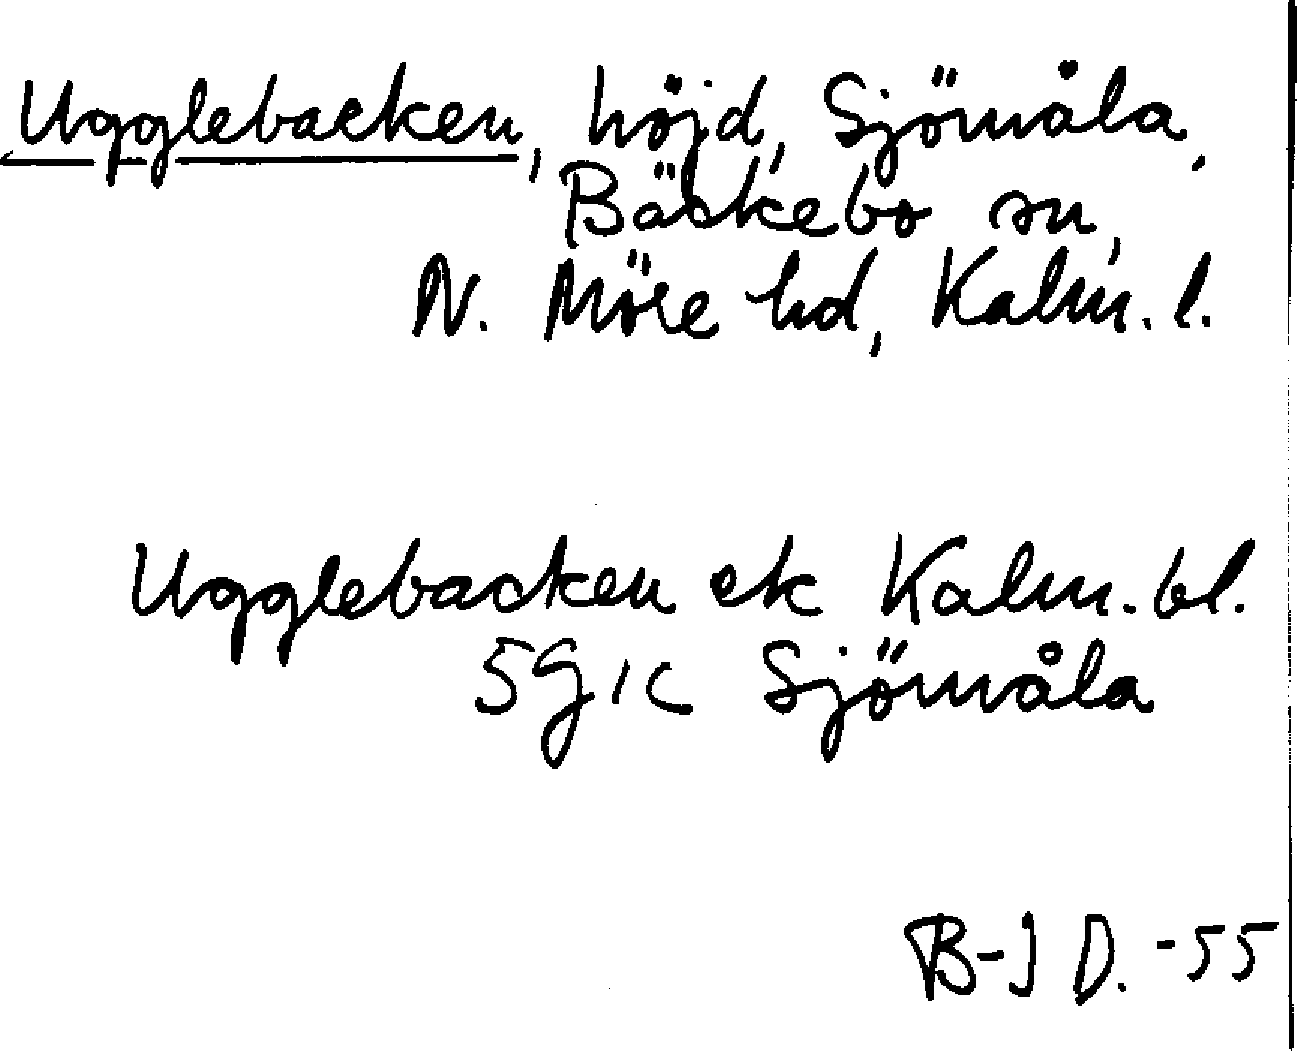 Ugglebacken, höjd, Sjömåla,
Bäckebo sn,
N. Möre hd, Kalm. l.
Ugglebacken ek Kalm. bl.
5G1c Sjömåla
B-J D. -55